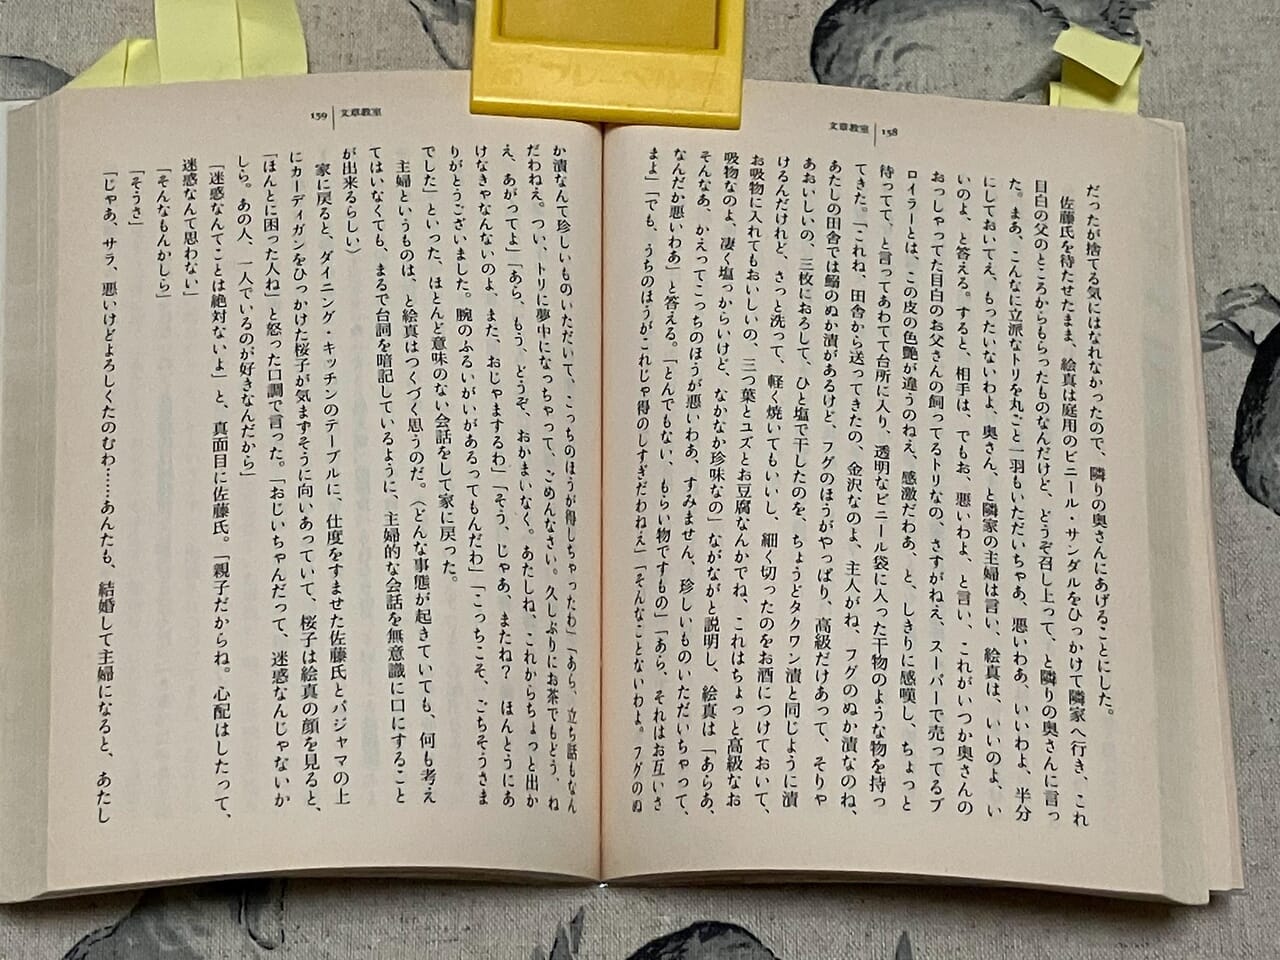 文章教室 158
だったが捨てる気にはなれなかったので、隣りの奥さんにあげることにした。
佐藤氏を待たせたまま、絵真は庭用のビニール・サンダルをひっかけて隣家へ行き、これ
目白の父のところからもらったものなんだけど、どうぞ召し上って、と隣りの奥さんに言っ
た。まあ、こんなに立派なトリを丸ごと一羽もいただいちゃあ、悪いわあ、いいわよ、半分
にしておいてえ、もったいないわよ、奥さん、と隣家の主婦は言い、絵真は、いいのよ、い
いのよ、と答える。すると、相手は、でもお、悪いわよ、と言い、これがいつか奥さんの
おっしゃってた目白のお父さんの飼ってるトリなの、さすがねえ、スーパーで売ってるブ
ロイラーとは、この皮の色艶が違うのねえ、感激だわあ、と、しきりに感嘆し、ちょっと
待ってて、と言ってあわてて台所に入り、透明なビニール袋に入った干物のような物を持っ
てきた。「これね、田舎から送ってきたの、金沢なのよ、主人がね、フグのぬか漬なのね、
あたしの田舎では鰯のぬか漬があるけど、フグのほうがやっぱり、高級だけあって、そりゃ
あおいしいの、三枚におろして、ひと塩で干したのを、ちょうどタクワン漬と同じように漬
けるんだけれど、さっと洗って、軽く焼いてもいいし、細く切ったのをお酒につけておいて、
お吸物に入れてもおいしいの、三つ葉とユズとお豆腐なんかでね、これはちょっと高級なお
吸物なのよ、凄く塩っからいけど、なかなか珍味なの」ながながと説明し、絵真は「あらあ、
そんなあ、かえってこっちのほうが悪いわあ、すみません、珍しいものいただいちゃって、
なんだか悪いわあ」と答える。「とんでもない、もらい物ですもの」「あら、それはお互いさ
まよ」「でも、うちのほうがこれじゃ得のしすぎだわねえ」「そんなことないわよ。フグのぬ
159 文章教室
か漬なんて珍しいものいただいて、こっちのほうが得しちゃったわ」「あら、立ち話もなん
だわねえ。つい、トリに夢中になっちゃって、ごめんなさい。久しぶりにお茶でもどう、ね
え、あがってよ」「あら、もう、どうぞ、おかまいなく。あたしね、これからちょっと出か
けなきゃなんないのよ、また、おじゃまするわ」「そう、じゃあ、またね？　ほんとうにあ
りがとうございました。腕のふるいがいがあるってもんだわ」「こっちこそ、ごちそうさま
でした」といった、ほとんど意味のない会話をして家に戻った。
主婦というものは、と絵真はつくづく思うのだ。（どんな事態が起きていても、何も考え
てはいなくても、まるで台詞を暗記しているように、主婦的な会話を無意識に口にすること
が出来るらしい）
家に戻ると、ダイニング・キッチンのテーブルに、仕度をすませた佐藤氏とパジャマの上
にカーディガンをひっかけた桜子が気まずそうに向いあっていて、桜子は絵真の顔を見ると、
「ほんとに困った人ね」と怒った口調で言った。「おじいちゃんだって、迷惑なんじゃないか
しら。あの人、一人でいるのが好きなんだから」
「迷惑なんてことは絶対ないよ」と、真面目に佐藤氏。「親子だからね。心配はしたって、
迷惑なんて思わない」
「そんなもんかしら」
「そうさ」
「じゃあ、サラ、悪いけどよろしくたのむわ……あんたも、結婚して主婦になると、あたし